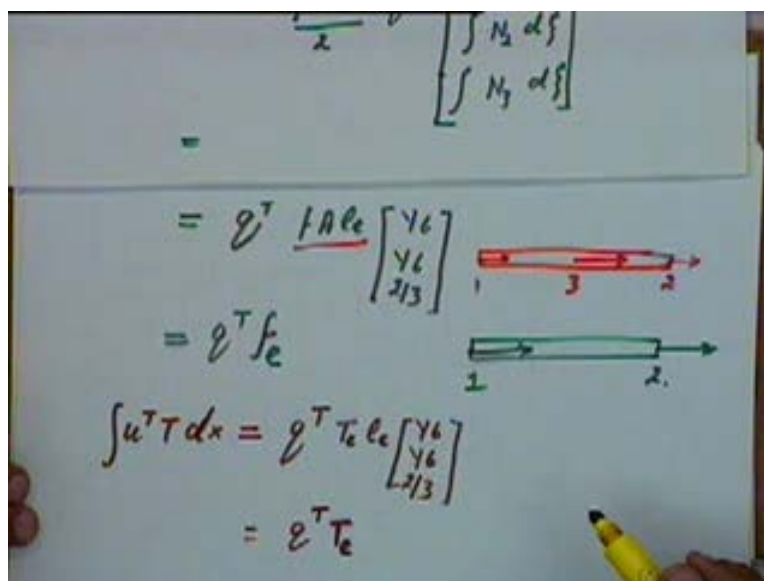 2 [∫ N₂ dξ
∫ N₃ dξ]
=
= q^T fAle [1/6
1/6
2/3]
1 3 2
= q^T fe
1 2.
∫u^T T dx = q^T Te le [1/6
1/6
2/3]
= q^T Te